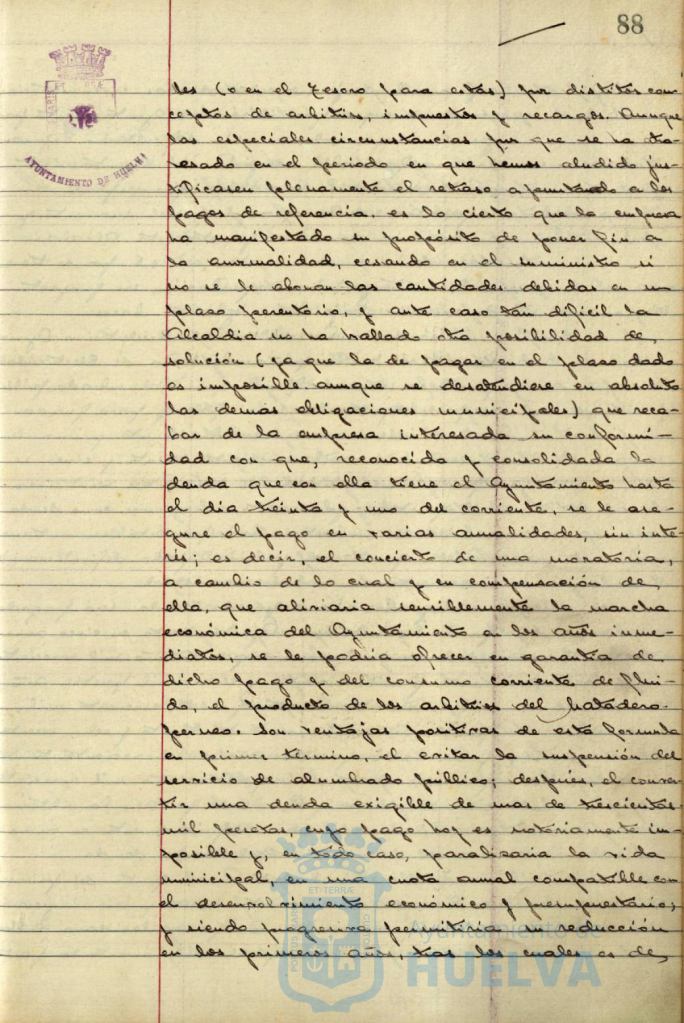 88
AYUNTAMIENTO DE HUELVA
les (o en el Tesoro para estos) por distitos con-
ceptos de arbitrios, impuestos y recargos. Aunque
las especiales circunstancias por que se ha atra-
vesado en el periodo en que hemos aludido jus-
tificasen plenamente el retraso apuntado a los
pagos de referencia. es lo cierto que la empresa
ha manifestado su propósito de poner fin a
la anormalidad, cesando en el suministro si
no se le abonan las cantidades debidas en un
plazo perentorio, y ante caso tan dificil la
Alcaldia no ha hallado otra posibilidad de
solución (ya que la de pagar en el plazo dado
es imposible aunque se desatendiere en absoluto
las demas obligaciones municipales) que reca-
bar de la empresa interesada su conformi-
dad con que, reconocida y consolidada la
deuda que con ella tiene el Ayuntamiento hasta
el dia treinta y uno del corriente, se le ase-
gure el pago en varias anualidades, sin inte-
rés; es decir, el concierto de una moratoria,
a cambio de lo cual y en compensación de
ella, que aliviaria sensiblemente la marcha
económica del Ayuntamiento en los años inme-
diatos, se le podria ofrecer en garantia de
dicho pago y del consumo corriente de flui-
do, el producto de los arbitrios del Matadero
perneo. Son ventajas positivas de esta formula
en primer término, el evitar la suspensión del
servicio de alumbrado público; después, el conver-
tir una deuda exigible de mas de trescientas
mil pesetas, cuyo pago hoy es notoriamente im-
posible y, en todo caso, paralizaria la vida
municipal, en una cuota anual compatible con
el desenvolvimiento económico y presupuestario;
y siendo progresiva permitiria su reducción
en los primeros años, tras los cuales es de
Ayuntamiento de
HUELVA